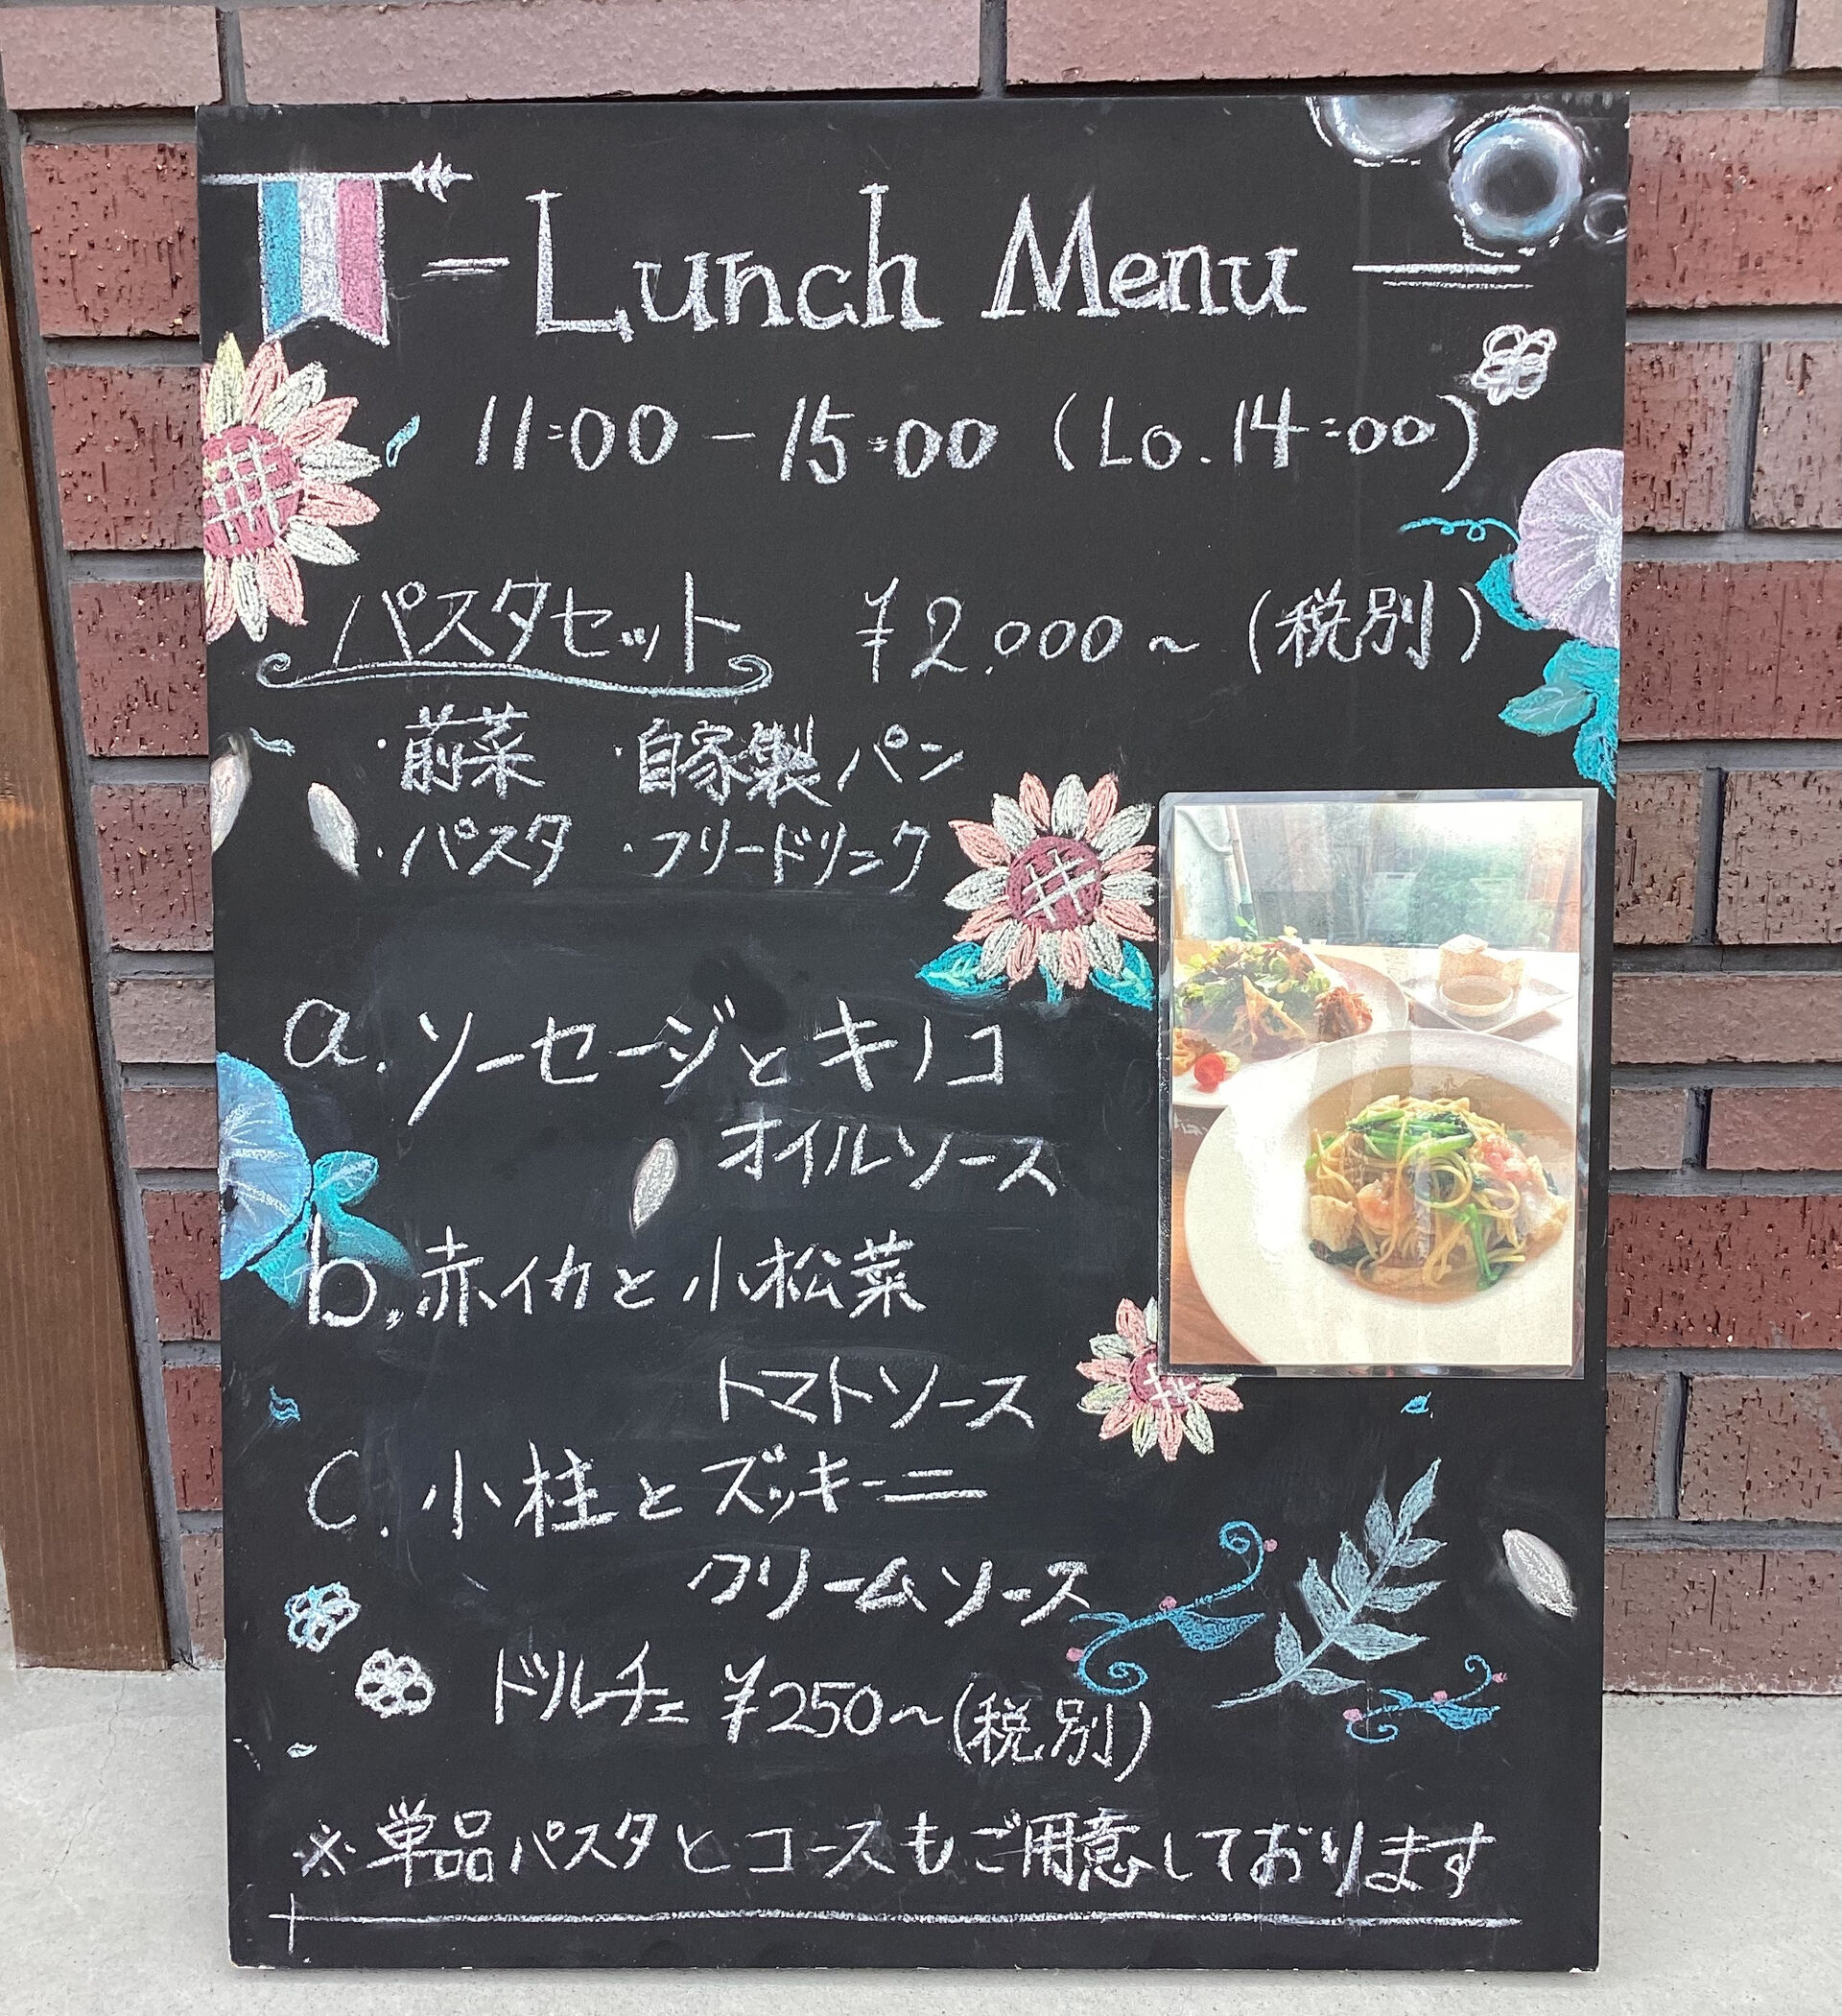 Lunch Menu
11:00 - 15:00 (Lo. 14:00)
パスタセット ¥2.000~ (税別)
・前菜 ・自家製パン
・パスタ ・フリードリンク
a. ソーセージとキノコ
オイルソース
b. 赤イカと小松菜
トマトソース
c. 小柱とズッキーニ
クリームソース
ドルチェ ¥250~(税別)
※単品パスタとコースもご用意しております